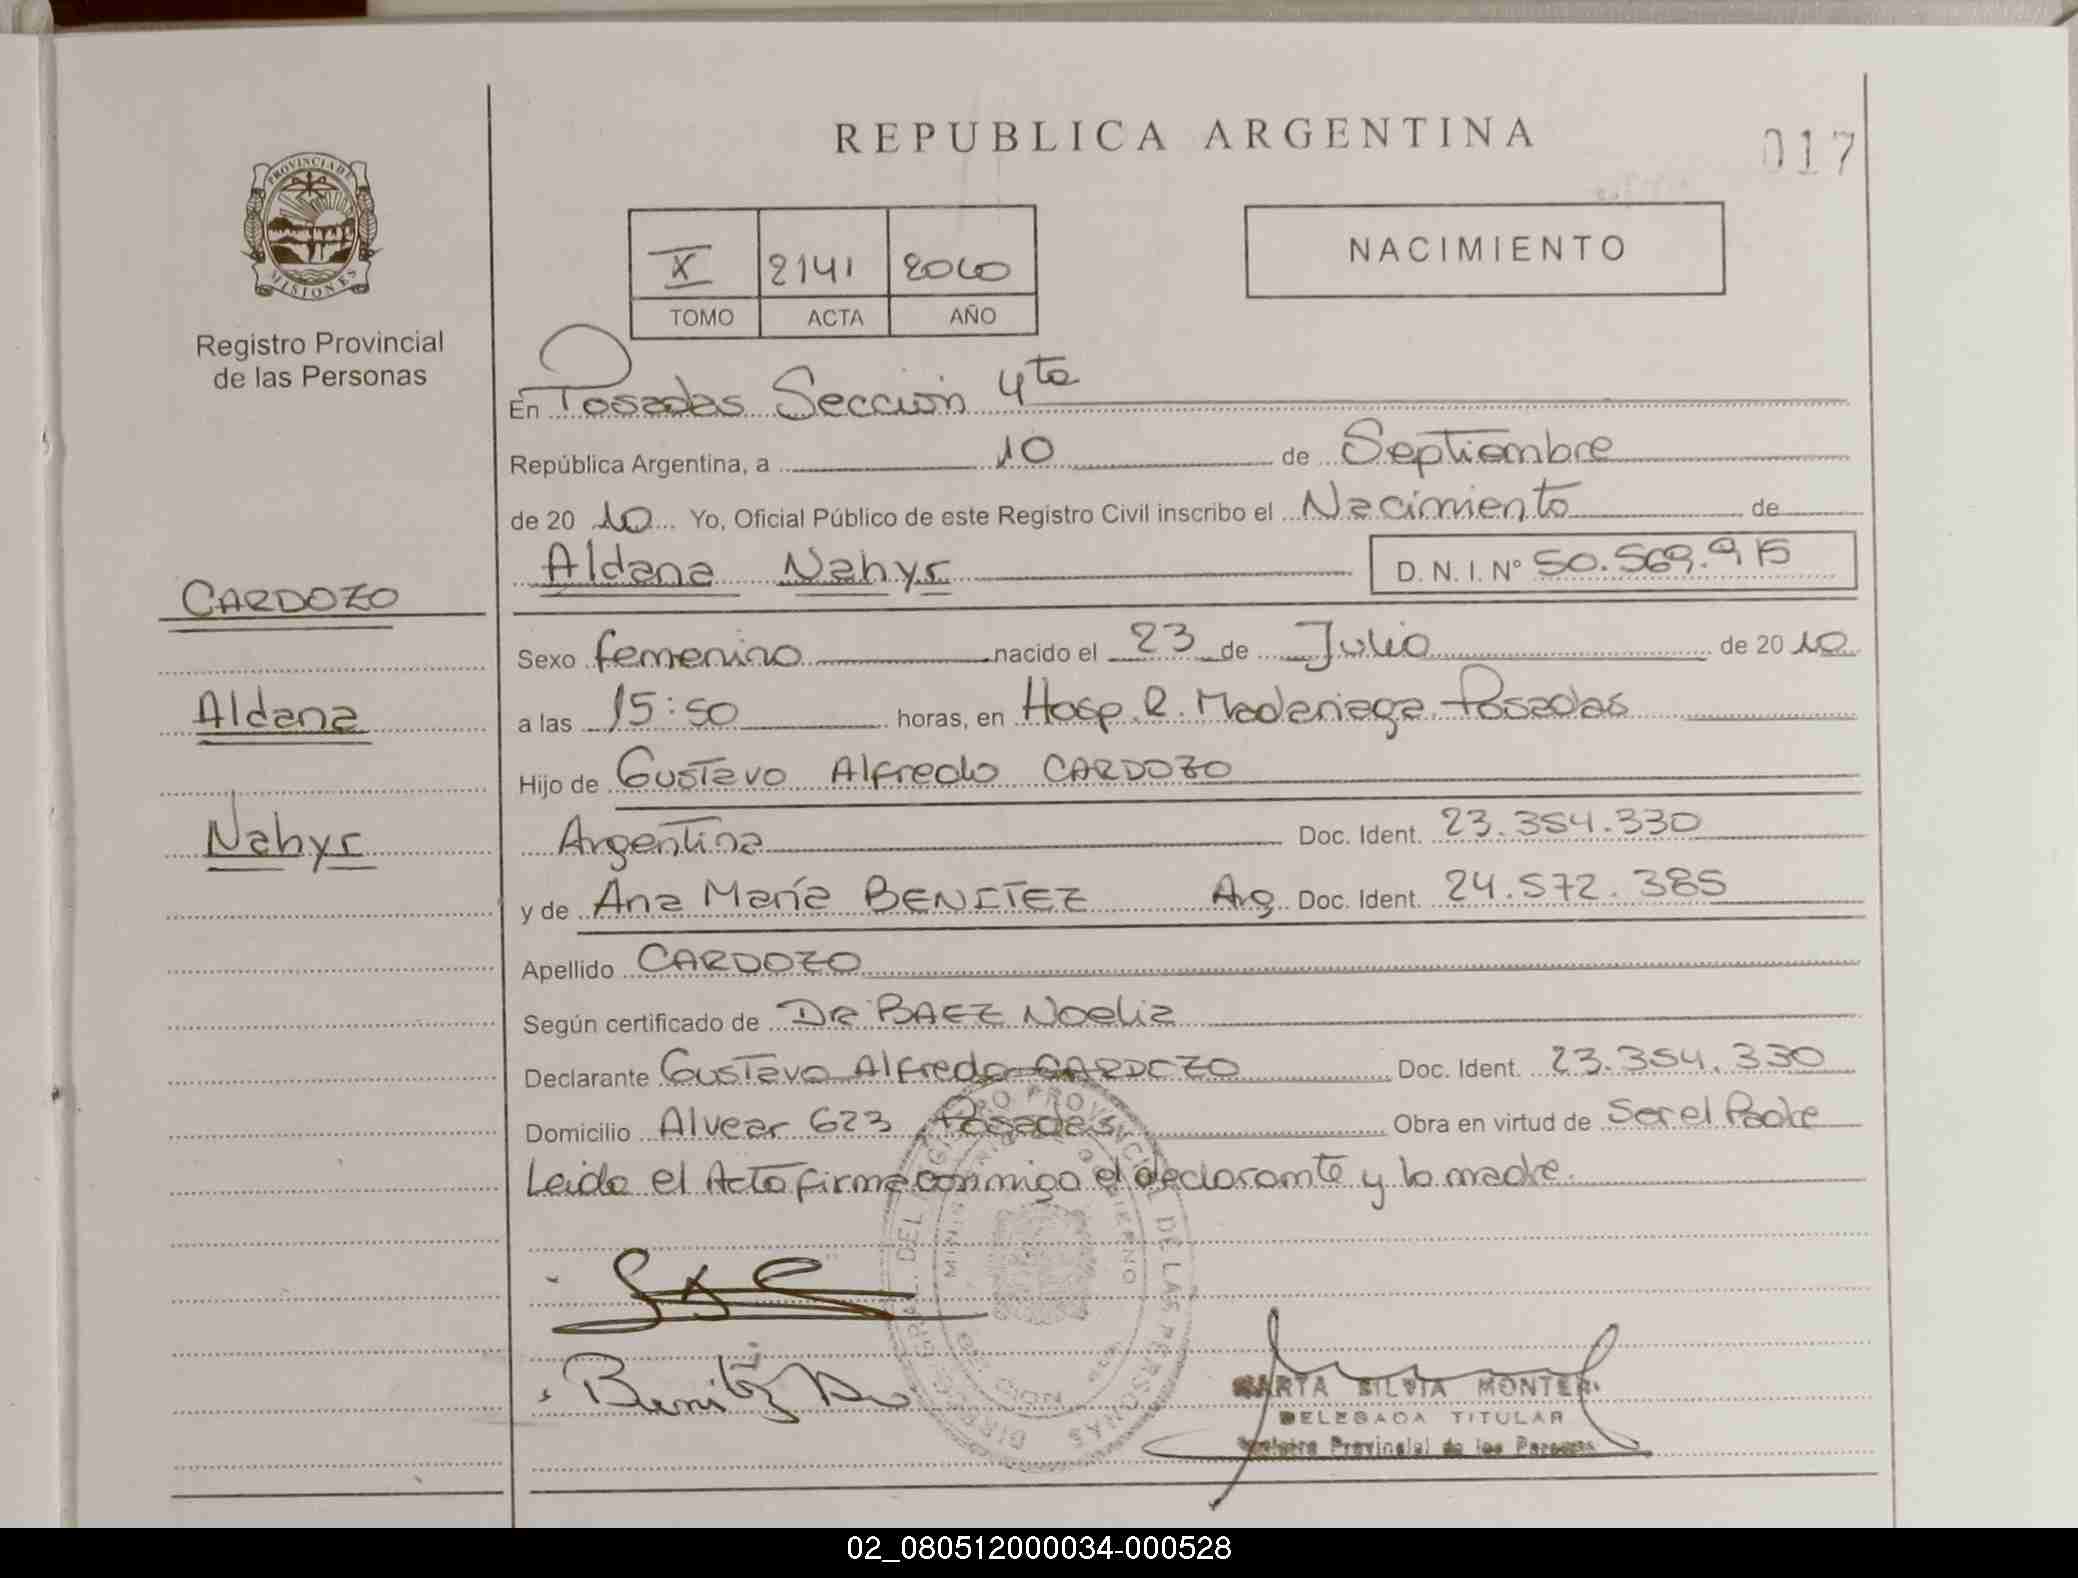 REPUBLICA ARGENTINA
017
PROVINCIA DE
MISIONES
Registro Provincial
de las Personas
X 2141 2010
TOMO ACTA AÑO
NACIMIENTO
En Posadas Sección 4ta
República Argentina, a 10 de Septiembre
de 20 10 Yo, Oficial Público de este Registro Civil inscribo el Nacimiento de
Aldana Nahyr D. N. I. Nº 50.569.915
CARDOZO
Aldana
Nahyr
Sexo femenino nacido el 23 de Julio de 20 10
a las 15:50 horas, en Hosp. R. Madariaga Posadas
Hijo de Gustavo Alfredo CARDOZO
Argentina Doc. Ident. 23.354.330
y de Ana María BENITEZ Arg Doc. Ident. 24.572.385
Apellido CARDOZO
Según certificado de DR BAEZ Noelia
Declarante Gustavo Alfredo CARDOZO Doc. Ident. 23.354.330
Domicilio Alvear 623 Posadas Obra en virtud de Ser el Padre
Leida el Acta firma conmigo el declarante y la madre.
REGISTRO PROVINCIAL DE LAS PERSONAS
Benitez
MARTA SILVIA MONTER
DELEGADA TITULAR
Registro Provincial de las Personas
02_080512000034-000528